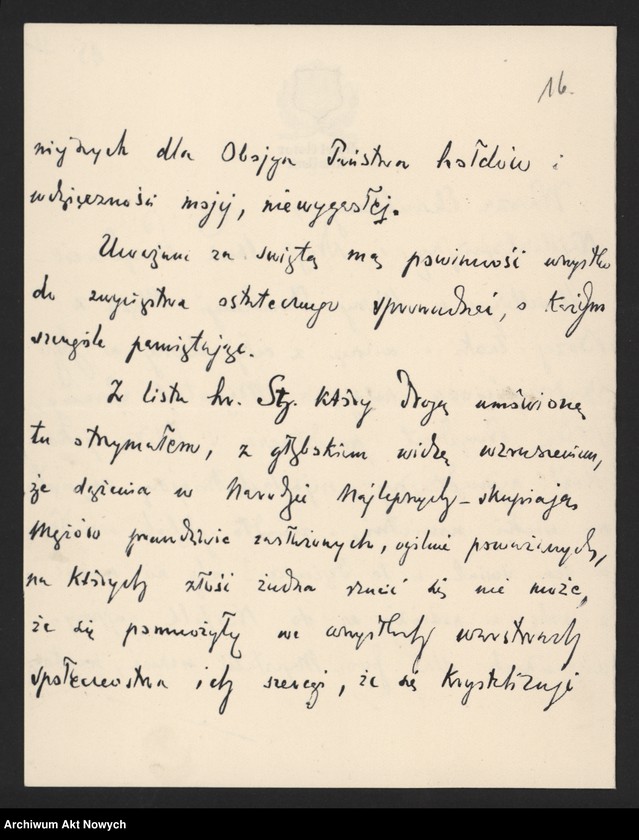 16.
dla Obojga Państwa hołdów i
wdzięczności mojej, niewygasłej.
Uważam za świętą mą powinność wszystko
do zwycięstwa ostatecznego sprowadzić, o każdym
szczególe pamiętając.
Z listu hr. Stz. który drogą umówioną
tu otrzymałem, z głębokiem widzę wzruszeniem,
że dążenia w Narodzie Najlepszych – skupiają
Mężów prawdziwie zasłużonych, ogólnie poważanych,
na których złość żadna rzucić się nie może,
że się pomnożyły we wszystkich warstwach
społeczeństwa ich szeregi, że się krystalizuje
Archiwum Akt Nowych